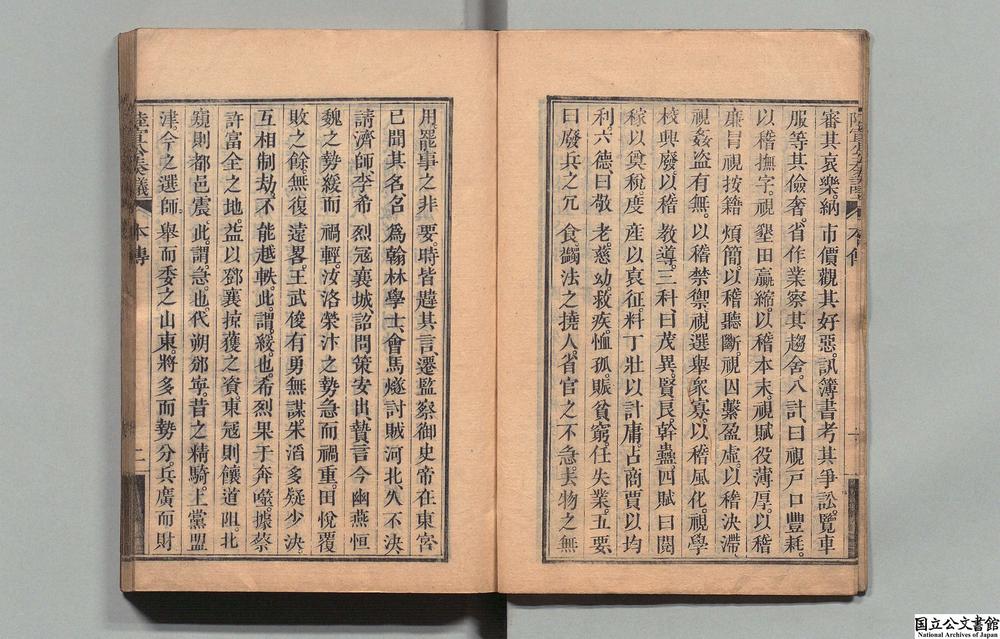 審其哀樂。納市價觀其好惡。訊簿書考其爭訟。覽車
服等其儉奢。省作業察其趨舍。八計。曰視戶口豐耗。
以稽撫字。視墾田贏縮。以稽本末。視賦役薄厚。以稽
廉冒。視按籍煩簡。以稽聽斷。視囚繫盈虛。以稽決滯。
視姦盜有無。以稽禁禦。視選舉衆寡。以稽風化。視學
校興廢。以稽教導。三科。曰茂異。賢良。幹蠱。四賦。曰閱
稼以奠稅。度產以裒征。料丁壯以計庸。占商賈以均
利。六德。曰敬老。慈幼。救疾。恤孤。賑貧窮。任失業。五要。
曰廢兵之冗食。蠲法之撓人。省官之不急。去物之無
用。罷事之非要。時皆韙其言。遷監察御史。帝在東宮
已聞其名。名爲翰林學士。會馬燧討賊河北。久不決
請濟師。李希烈寇襄城。詔問策安出。贄言今幽燕恒
魏之勢緩而禍輕。汝洛滎汴之勢急而禍重。田悅覆
敗之餘。無復遠畧。王武俊有勇無謀。朱滔多疑少決
互相制劫。不能越軼。此謂緩也。希烈果于奔噬。據蔡
許富全之地。益以鄧襄掠獲之資。東寇則饟道阻。北
窺則都邑震。此謂急也。代朔邠寧。昔之精騎。上黨盟
津。今之選師。舉而委之山東。將多而勢分。兵廣而財
陸宣公奏議 本傳 二
国立公文書館
National Archives of Japan